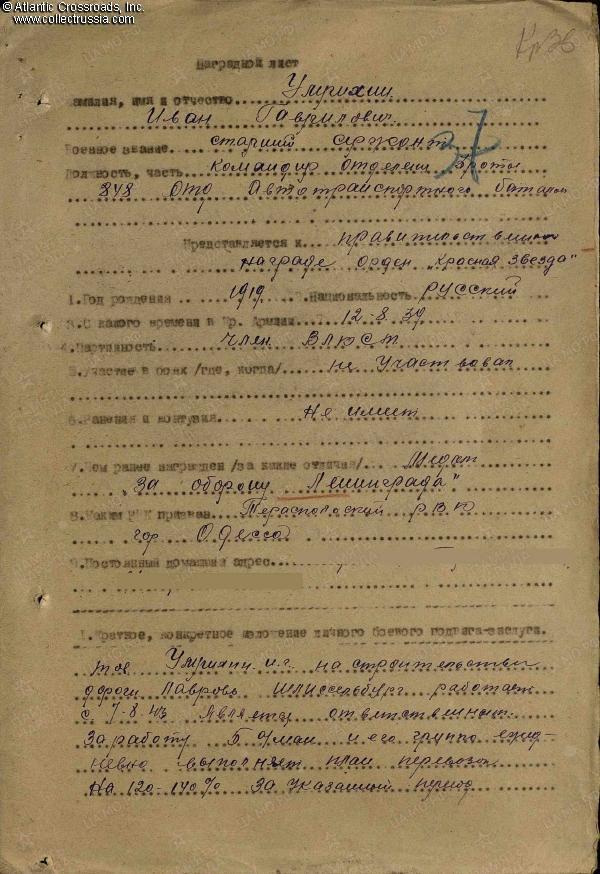 © Atlantic Crossroads, Inc.
www.collectrussia.com
Кр Зв
Наградной лист
Фамилия, имя и отчество Умрихин
Иван Гаврилович
Военное звание старший сержант
37
Должность, часть командир отделения роты
848 Отд Автотранспортного батальон
Представляется к правительственной
награде Орден "Красная Звезда"
1. Год рождения 1919 2. Национальность русский
3. С какого времени в Кр. Армии 12-8-39
4. Партийность член ВЛКСМ
5. Участие в боях /где, когда/ не участвовал
6. Ранения и контузия Не имеет
7. Чем ранее награжден /за какие отличия/ Медал
"За оборону Ленинграда"
8. Каким РВК призван Тераспольский РВК
гор Одесса
9. Постоянный домашний адрес
1. Краткое, конкретное изложение личного боевого подвига-заслуги.
тов Умрихин И.Г. на строительстве
дороги Лаврово Шлиссельбург работает
с 7-8-43 Является ответственным
За работу 5 а/маш и его группа ежед-
невно выполняет план перевозок
На 120-140% За указанный период